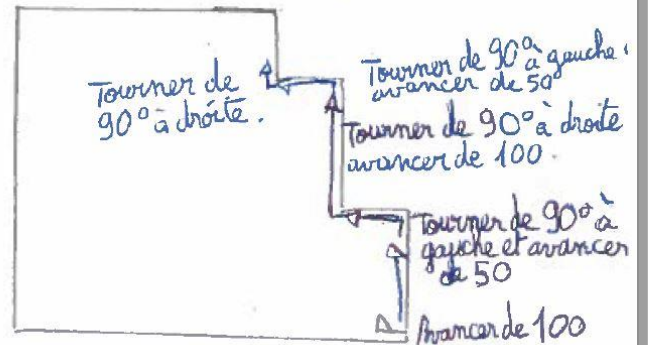 Tourner de
90° à dróite.
Tourner de 90° à gauche
avancer de 50
Tourner de 90° à droite
avancer de 100.
Tourner de 90° à
gauche et avancer
de 50
Avancer de 100